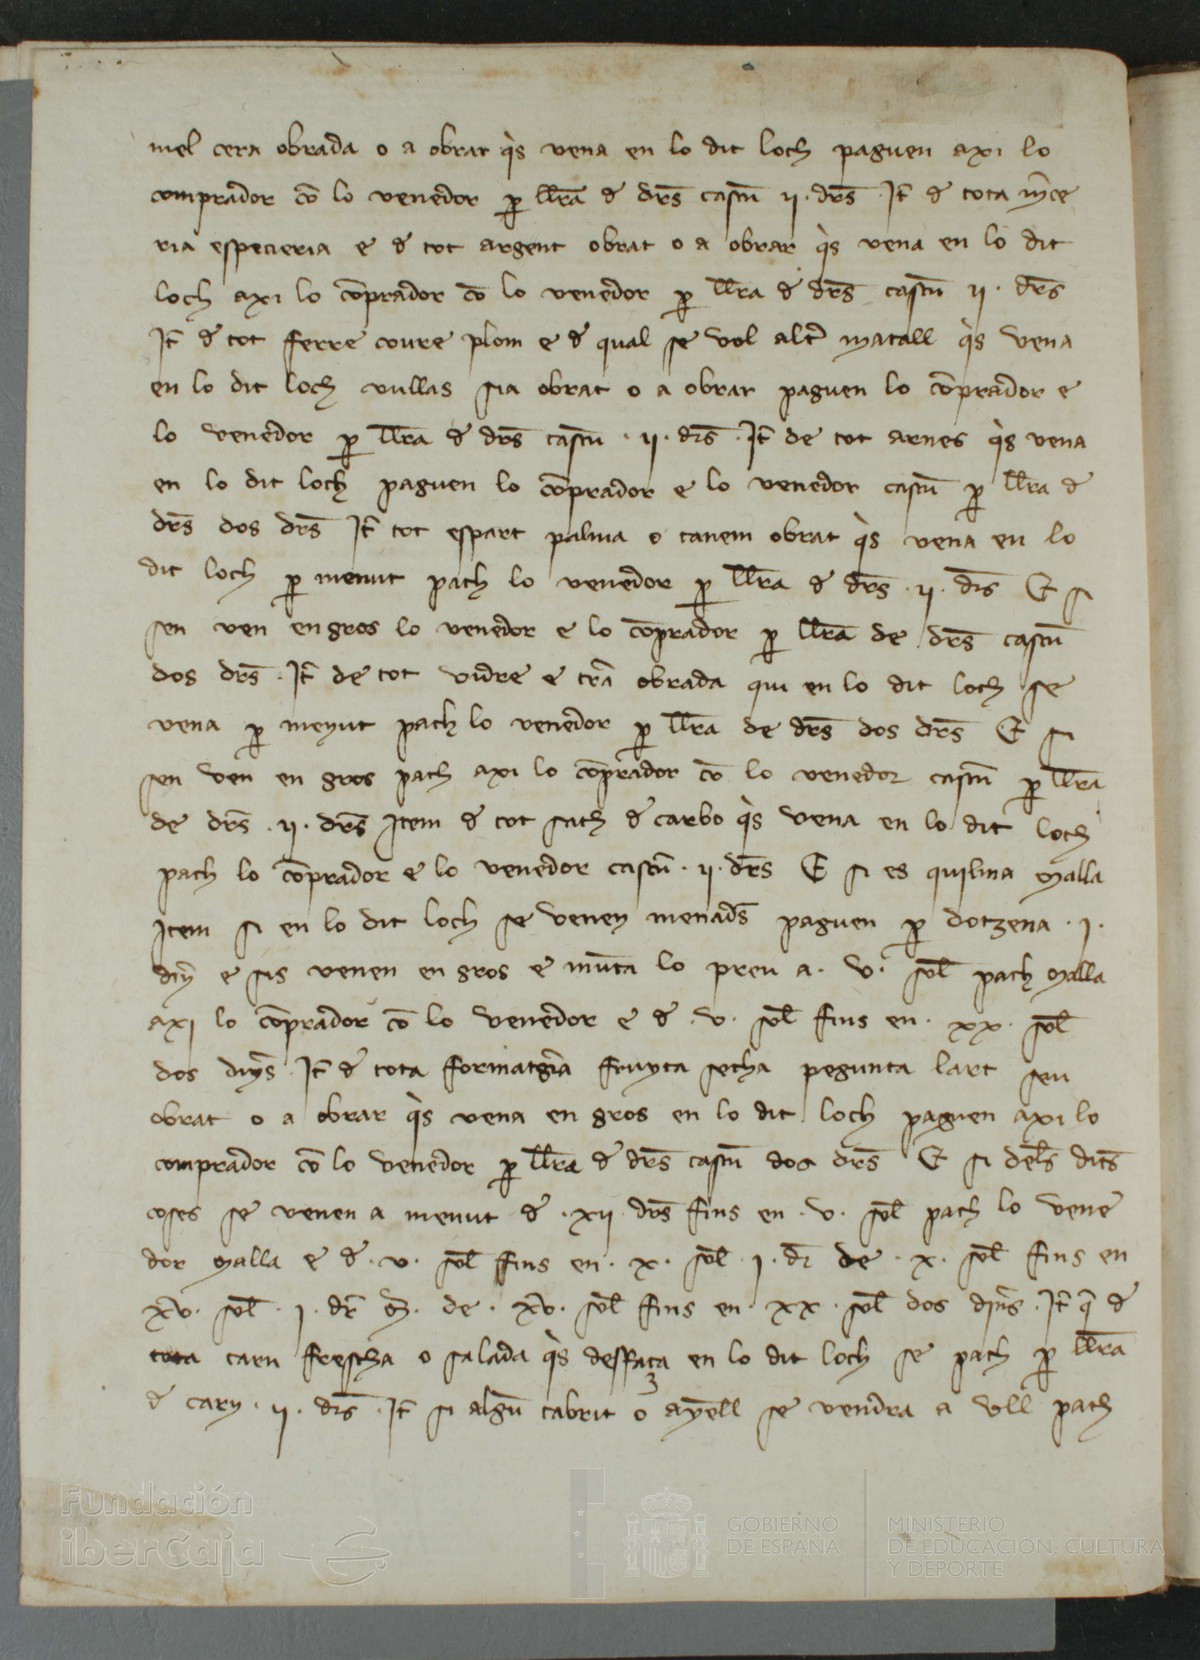 mel cera obrada o a obrar q̀s vena en lo dit loch paguen axi lo
comprador cō lo venedor ꝑ llr̄a đ drs̄ cascū ·ii· drs̄ Jt̄ đ tota m̄ce
ria especieria e đ tot argent obrat o a obrar q̀s vena en lo dit
loch axi lo cōprador cō lo venedor ꝑ llr̄a đ drs̄ cascū ii· drs̄
Jt̄ đ tot ferre coure plom e đ qual se vol altr̄ matall q̀s vena
en lo dit loch vullas sia obrat o a obrar paguen lo cōprador e
lo venedor ꝑ llr̄a đ drs̄ cascū ·ii· drs̄ Jt̄ de tot arnes q̀s vena
en lo dit loch paguen lo cōprador e lo venedor cascū ꝑ llr̄a đ
drs̄ dos drs̄ Jt̄ tot espart palma o canem obrat q̀s vena en lo
dit loch ꝑ menut pach lo venedor ꝑ llr̄a đ drs̄ ·ii· drs̄ E si
sen ven en gros lo venedor e lo cōprador ꝑ llr̄a de drs̄ cascū
dos drs̄ · Jt̄ de tot vidre e tr̄a obrada qui en lo dit loch se
vena ꝑ menut pach lo venedor ꝑ llr̄a de drs̄ dos drs̄ E si
sen ven en gros pach axi lo cōprador cō lo venedor cascū ꝑ llr̄a
de drs̄ ·ii· drs̄ Item đ tot sach đ carbo q̀s vena en lo dit loch
pach lo cōprador e lo venedor cascū ·ii· drs̄ E si es quilma malla
Item si en lo dit loch se venen menads̄ paguen ꝑ dotzena ·i·
din̄ e sis venen en gros e munta lo preu a· v· sol̄ pach malla
axi lo cōprador cō lo venedor e đ ·v· sol̄ fins en· xx· sol̄
dos dins̄ Jt̄ đ tota formatgia fruyta secha pegunta lart seu
obrat o a obrar q̀s vena en gros en lo dit loch paguen axi lo
comprador cō lo venedor ꝑ llr̄a đ drs̄ cascū dos drs̄ E si dels̄ dits̄
coses se venen a menut đ ·xii· drs̄ fins en ·v· sol̄ pach lo vene
dor malla e đ ·v· sol̄ fins en· x· sol̄ ·i· dr̄ de ·x· sol̄ fins en
xv· sol̄ ·i· dr̄ de · xv· sol̄ fins en· xx· sol̄ dos dins̄ · Jt̄ q̄ đ
tota carn frescha o salada q̀s desfaça en lo dit loch se pach ꝑ llr̄a
đ carn ·ii· drs̄ · Jt̄ si algū cabrit o ayell se vendra a ull pach
Fundación
iberCaja
GOBIERNO
DE ESPAÑA
MINISTERIO
DE EDUCACIÓN, CULTURA
Y DEPORTE